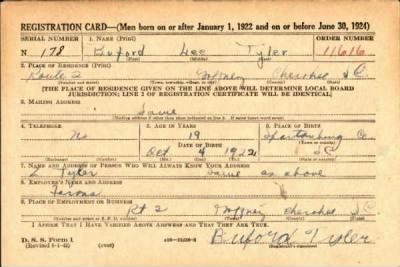 REGISTRATION CARD—(Men born on or after January 1, 1922 and on or before June 30, 1924)
SERIAL NUMBER 1. NAME (Print) ORDER NUMBER
N 178 Buford Lee Tyler 11616
(First) (Middle) (Last)
2. PLACE OF RESIDENCE (Print)
Route 2 Gaffney Cherokee S.C.
(Number and street) (Town, township, village, or city) (County) (State)
[THE PLACE OF RESIDENCE GIVEN ON THE LINE ABOVE WILL DETERMINE LOCAL BOARD
JURISDICTION; LINE 2 OF REGISTRATION CERTIFICATE WILL BE IDENTICAL]
3. MAILING ADDRESS
Same
(Mailing address if other than place indicated on line 2. If same insert word same)
4. TELEPHONE 5. AGE IN YEARS 6. PLACE OF BIRTH
No 19 Spartanburg Co
DATE OF BIRTH (Town or county)
Oct 4 1922 SC
(Mo.) (Day) (Yr.) (State or country)
7. NAME AND ADDRESS OF PERSON WHO WILL ALWAYS KNOW YOUR ADDRESS
Tyler Same as above
8. EMPLOYER'S NAME AND ADDRESS
9. PLACE OF EMPLOYMENT OR BUSINESS
Rt 2 Gaffney Cherokee S.C.
(Number and street or R. F. D. number) (Town) (County) (State)
I AFFIRM THAT I HAVE VERIFIED ABOVE ANSWERS AND THAT THEY ARE TRUE.
D. S. S. Form 1
(Revised 6-1-42) (over) Buford Tyler
(Registrant's signature)